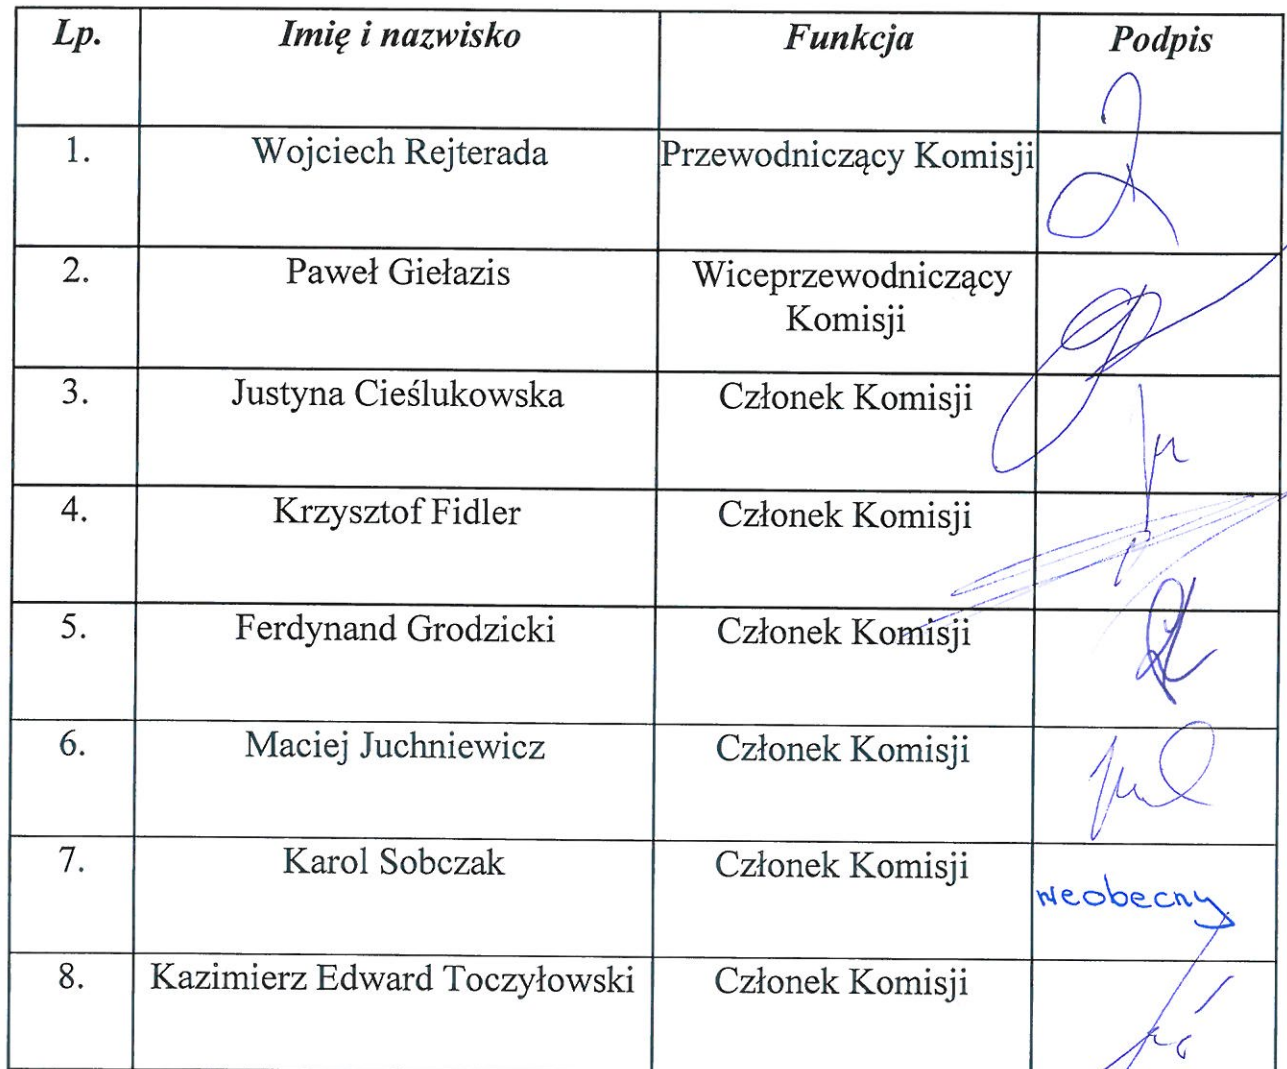 Lp. Imię i nazwisko Funkcja Podpis
1. Wojciech Rejterada Przewodniczący Komisji
2. Paweł Giełazis Wiceprzewodniczący
Komisji
3. Justyna Cieślukowska Członek Komisji
4. Krzysztof Fidler Członek Komisji
5. Ferdynand Grodzicki Członek Komisji
6. Maciej Juchniewicz Członek Komisji
7. Karol Sobczak Członek Komisji
nieobecny
8. Kazimierz Edward Toczyłowski Członek Komisji